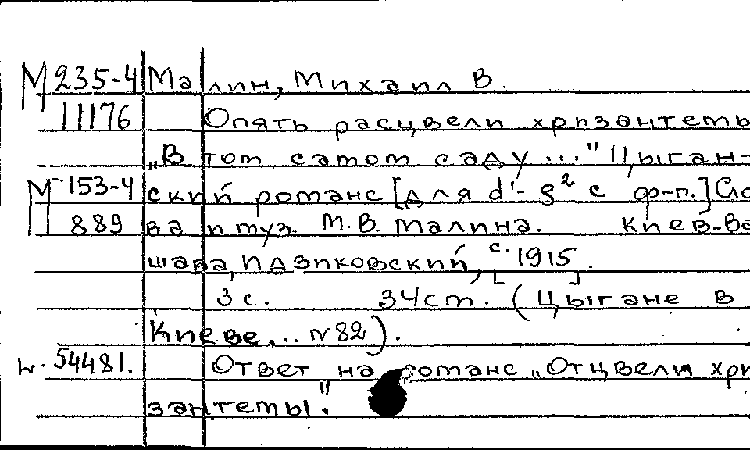 М 235-4 Малин, Михаил В.
11176 Опять расцвели хризантемы
„В том самом саду..." Цыган-
М 153-4 ский романс [для d'- g² с ф-п.] Сло
889 ва и муз. М.В. Малина. Киев-Ва
шава, Идзиковский, с. [1915].
3 с. 34 ст. (Цыгане в
Киеве... №82).
н. 54481. Ответ на романс „Отцвели хри
зантемы".